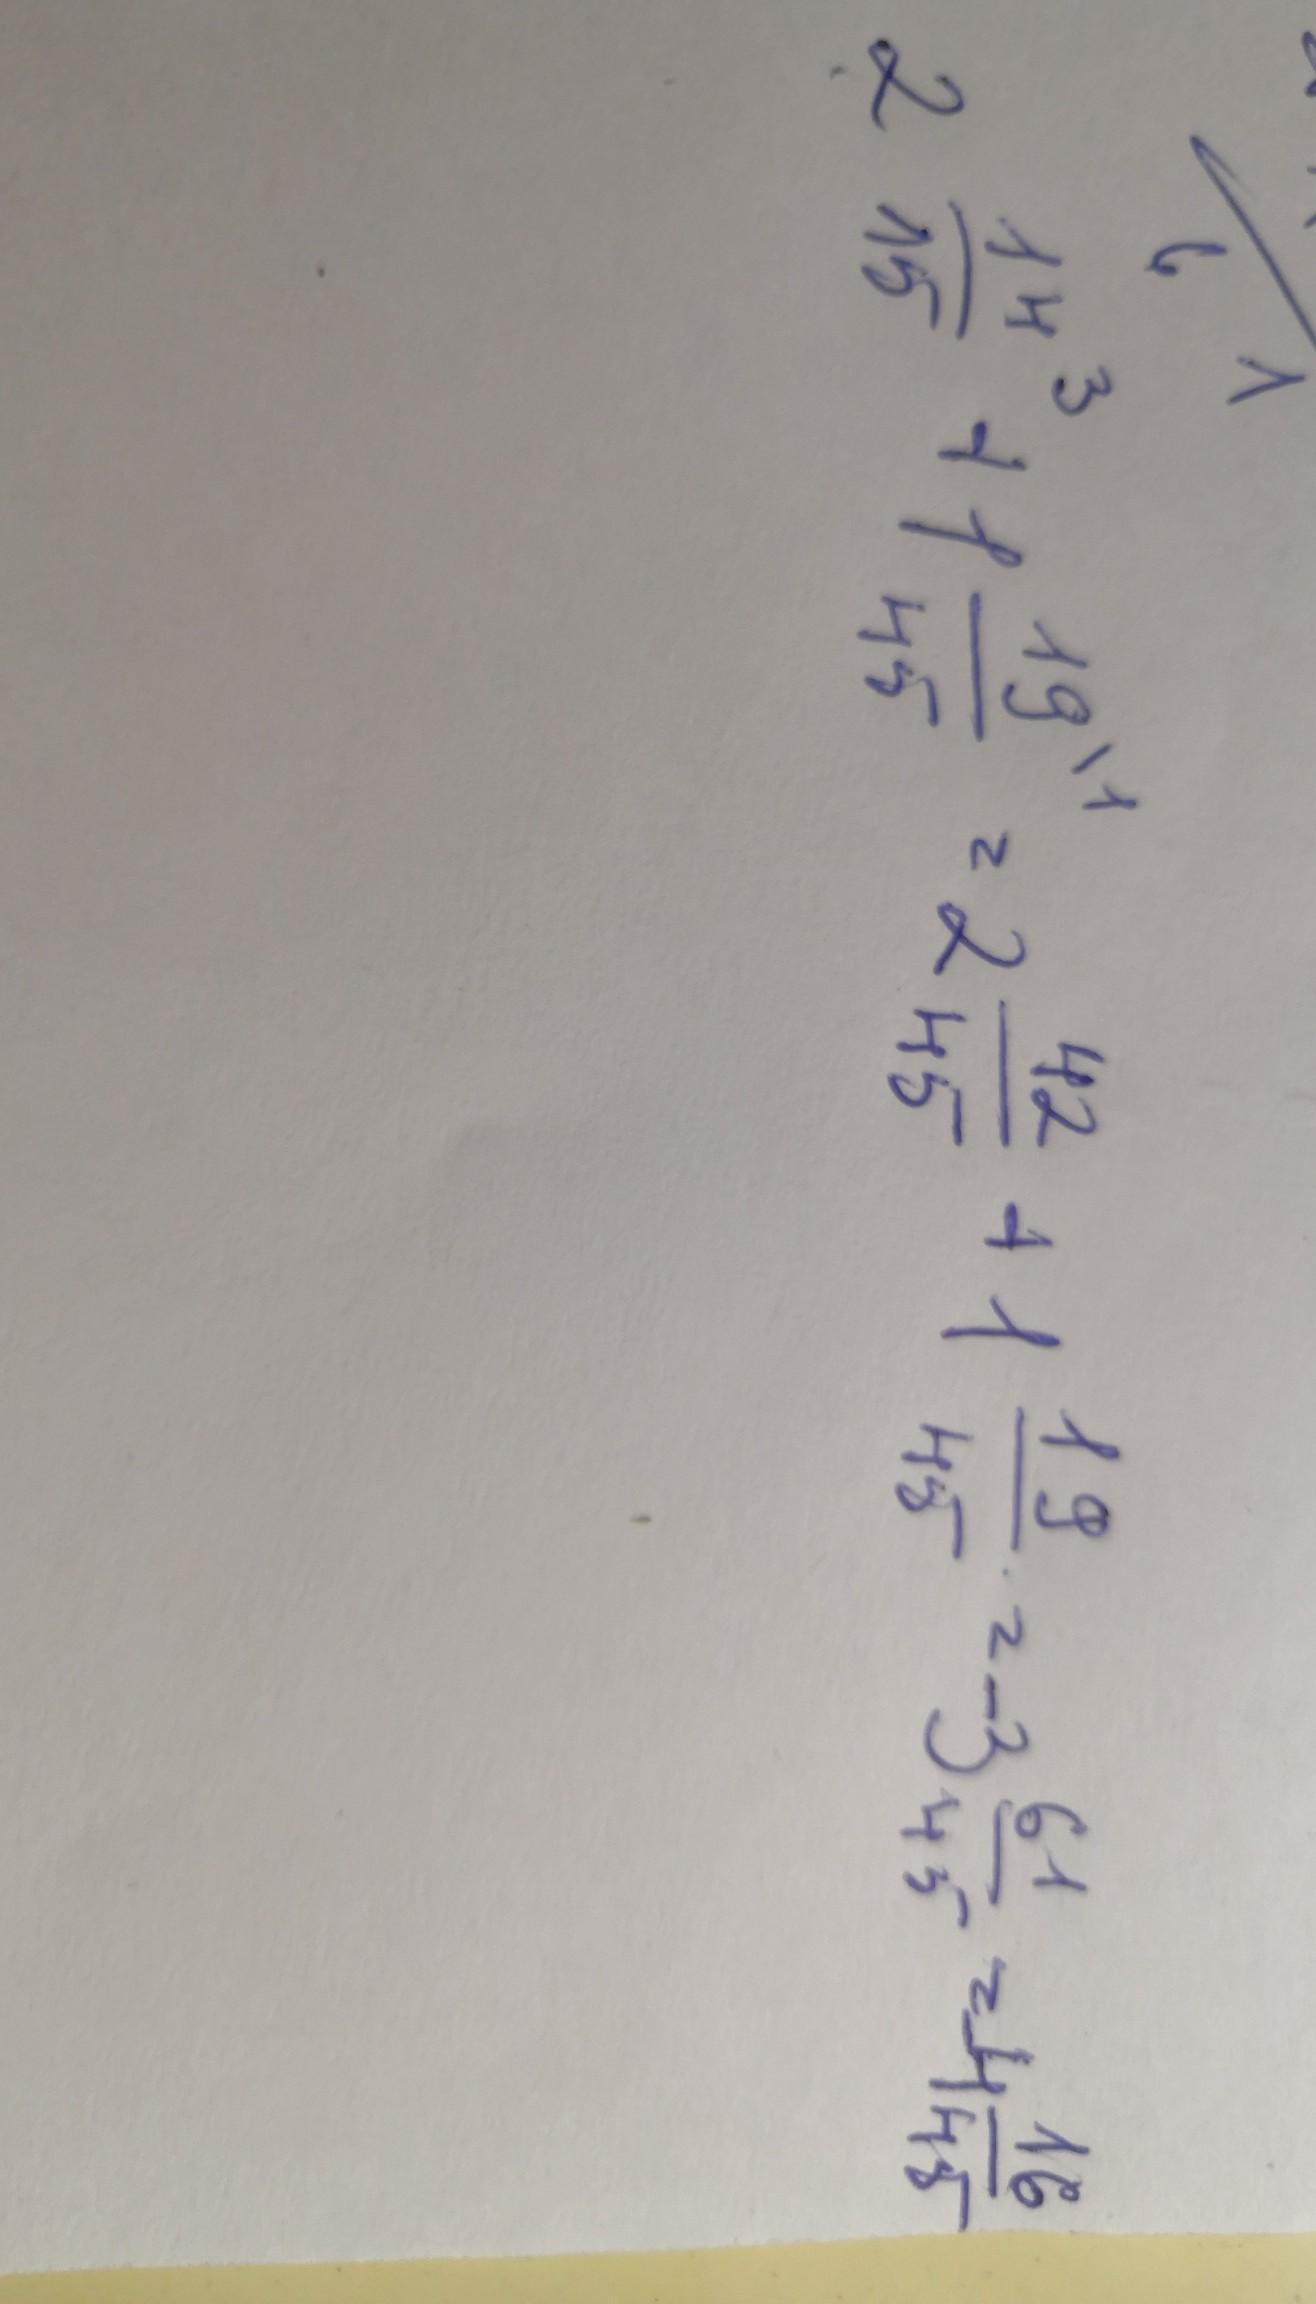 6 1
2 14/15 ³ + 1 19/45 \1 = 2 42/45 + 1 19/45 = 3 61/45 = 4 16/45